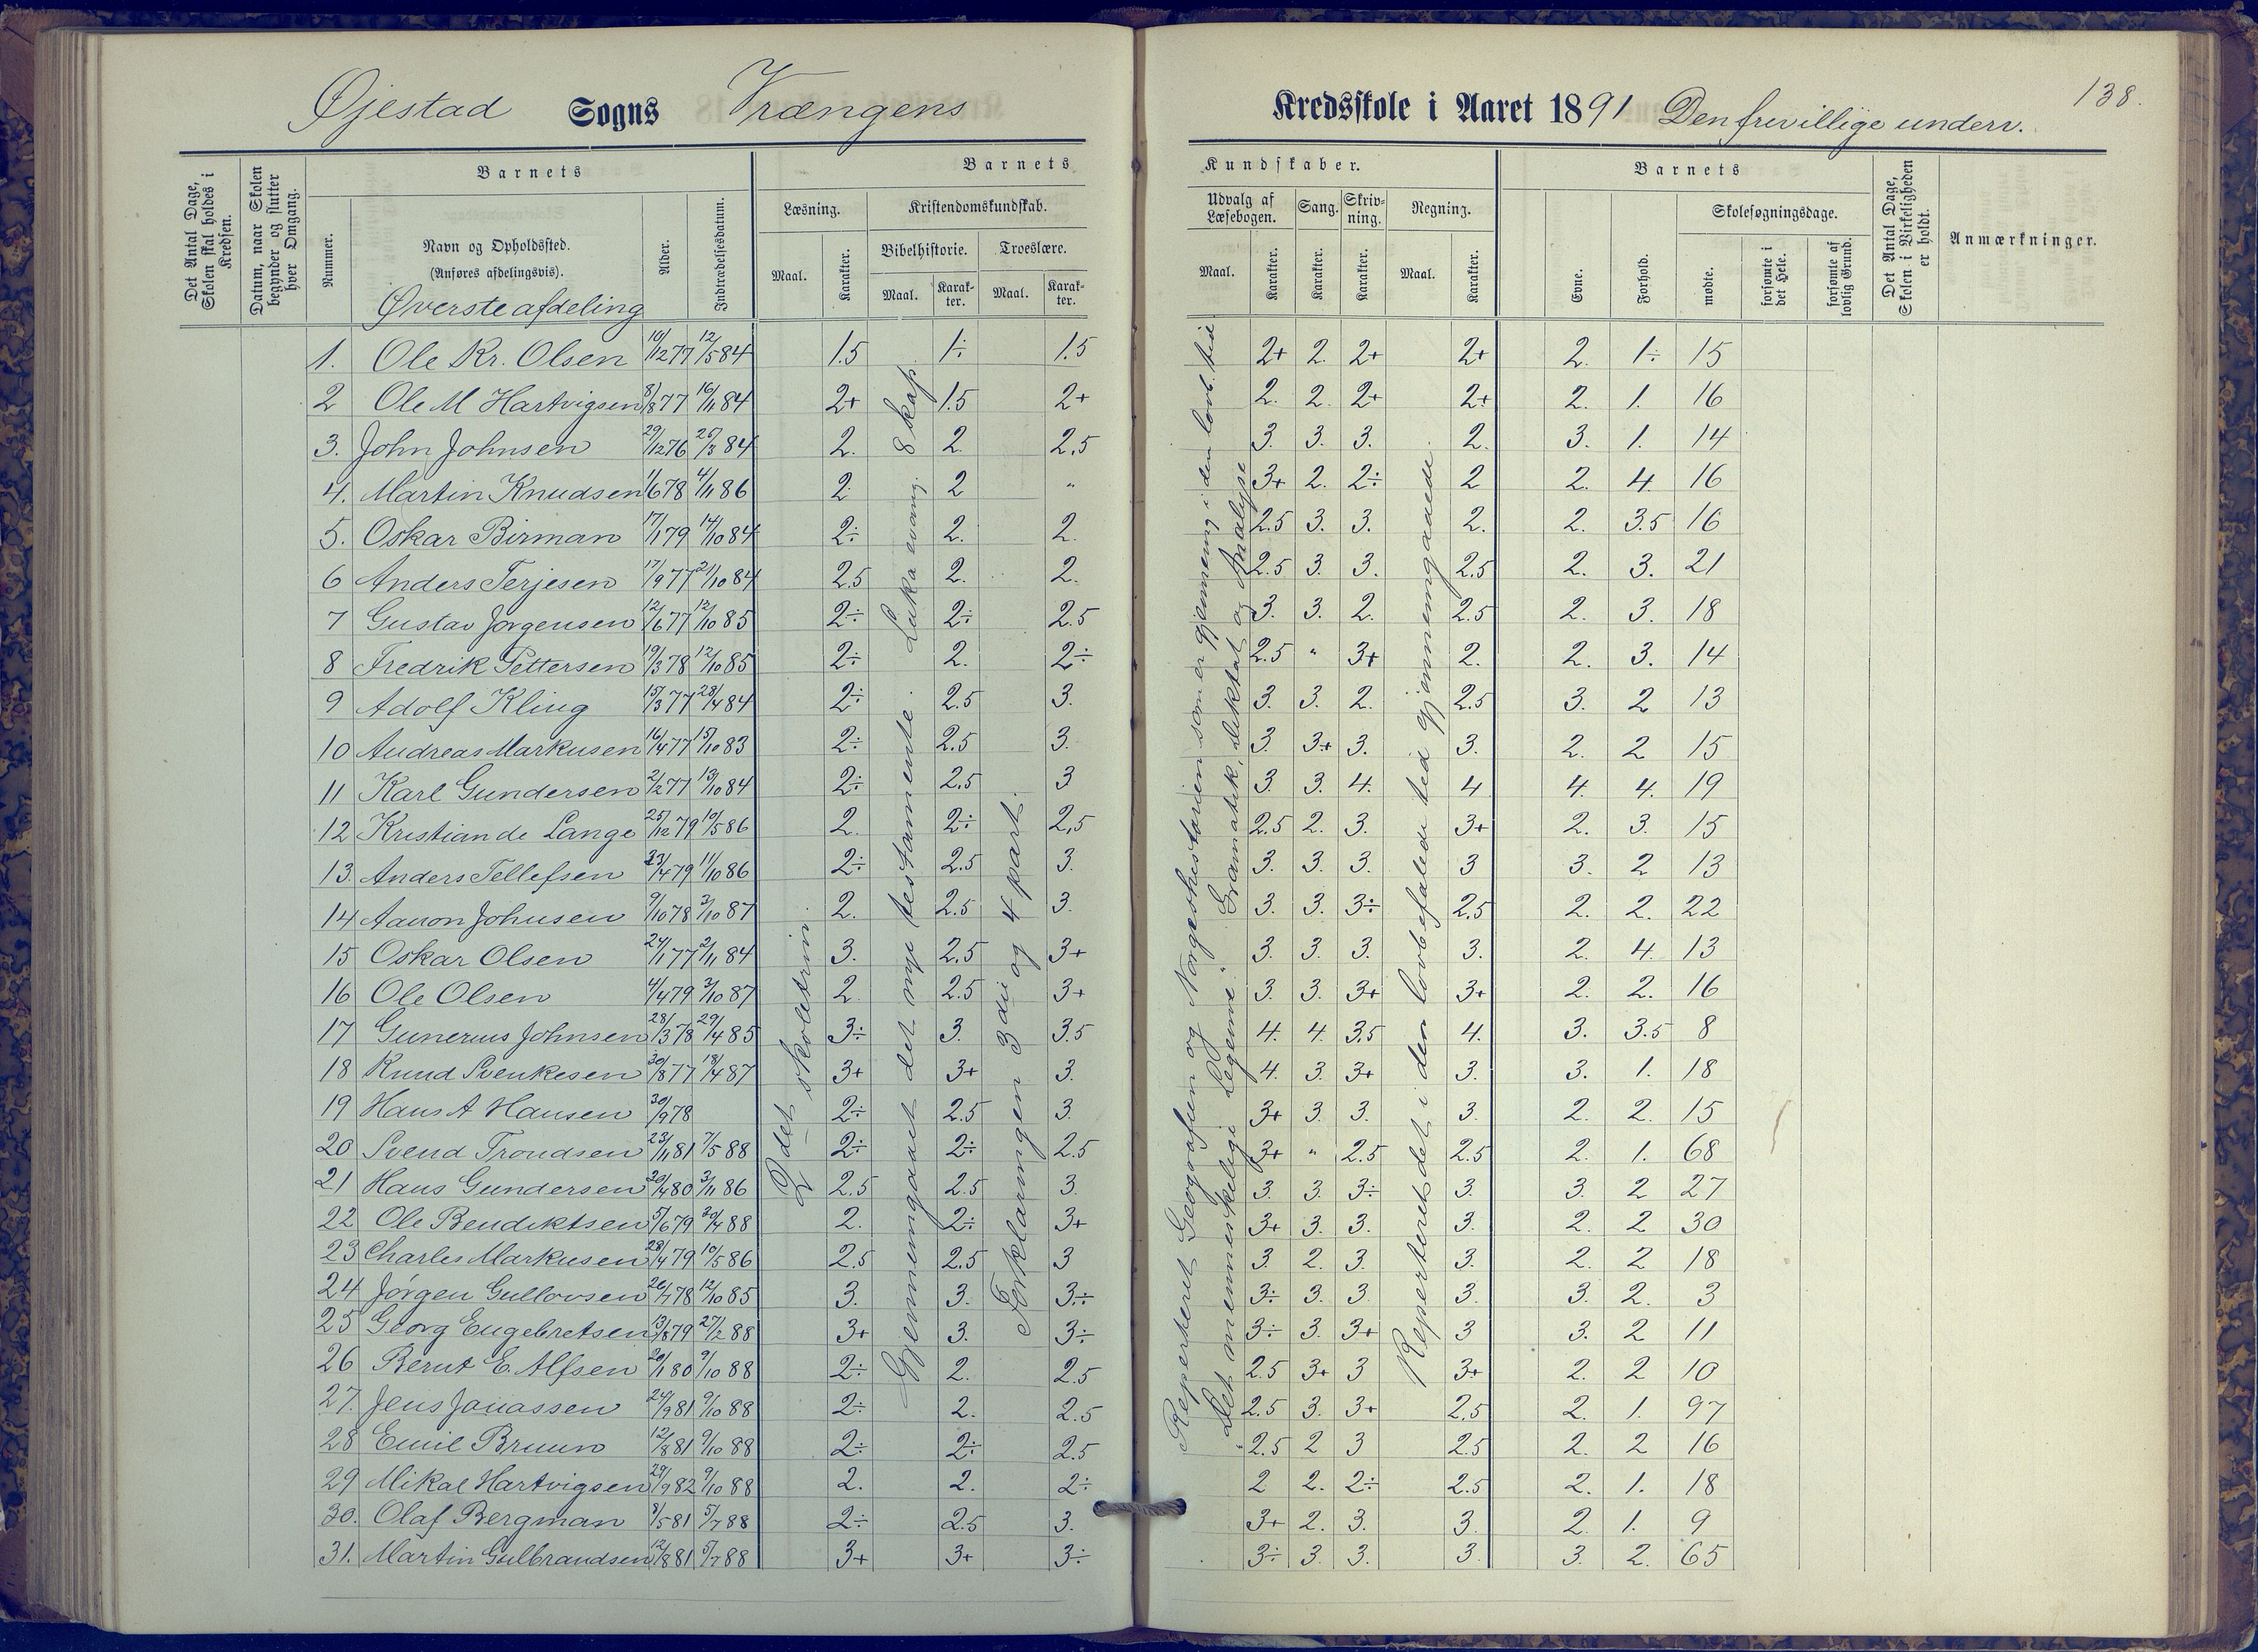 Øjestad Sogns Vrængens
Kredsskole i Aaret 1891 Den frivillige underv.
138.
Det Antal Dage, Skolen skal holdes i Kredsen.
Datum, naar Skolen begynder og slutter hver Omgang.
Barnets
Nummer.
Navn og Opholdssted.
(Anføres afdelingsvis).
Øverste afdeling
Alder.
Indtrædelsesdatum.
Barnets
Læsning.
Maal.
Karakter.
Kristendomskundskab.
Bibelhistorie.
Maal.
Karakter.
Troeslære.
Maal.
Karakter.
Kundskaber.
Udvalg af Læsebogen.
Maal.
Karakter.
Sang.
Karakter.
Skrivning.
Karakter.
Regning.
Maal.
Karakter.
Barnets
Evne.
Forhold.
Skolesøgningsdage.
mødte.
forsømte i det Hele.
forsømte af lovlig Grund.
Det Antal Dage, Skolen i Virkeligheden er holdt.
Anmærkninger.
1. Ole Kr. Olsen 10/12 77 12/5 84 1.5 1÷ 1.5 2+ 2. 2+ 2+ 2. 1÷ 15
2 Ole M Hartvigsen 8/8 77 16/11 84 2+ 1.5 2+ 2. 2. 2+ 2+ 2. 1. 16
3. John Johnsen 29/12 76 26/3 84 2. 2. 2.5 3. 3. 3. 2. 3. 1. 14
4. Martin Knudsen 1/6 78 4/11 86 2. 2 " 3+ 2. 2÷ 2 2. 4. 16
5. Oskar Birman 17/1 79 14/10 84 2÷ 2. 2. 2.5 3. 3. 2. 2. 3.5 16
6 Anders Terjesen 17/9 77 21/10 84 2.5 2. 2. 2.5 3. 3. 2.5 2. 3. 21
7 Gustav Jørgensen 12/6 77 12/10 85 2÷ 2÷ 2.5 3. 3. 2. 2.5 2. 3. 18
8 Fredrik Pettersen 19/3 78 12/10 85 2÷ 2. 2÷ 2.5 " 3+ 2. 2. 3. 14
9 Adolf Kling 15/3 77 28/4 84 2÷ 2.5 3. 3. 3. 2. 2.5 3. 2 13
10 Andreas Markusen 16/4 77 15/10 83 2÷ 2.5 3. 3. 3+ 3. 3. 2. 2 15
11 Karl Gundersen 2/2 77 13/10 84 2÷ 2.5 3 3. 3. 4. 4 4. 4. 19
12 Kristian de Lange 25/12 79 10/5 86 2. 2÷ 2,5 2.5 2. 3. 3+ 2. 3. 15
13. Anders Tellefsen 23/4 79 11/10 86 2÷ 2.5 3. 3. 3. 3. 3 3. 2 13
14 Aanon Johnsen 9/10 78 3/10 87 2. 2.5 3. 3. 3. 3÷ 2.5 2. 2. 22
15 Oskar Olsen 24/1 77 2/11 84 3. 2.5 3+ 3. 3. 3. 3. 2. 4. 13
16 Ole Olsen 4/4 79 3/10 87 2. 2.5 3+ 3. 3. 3+ 3+ 2. 2. 16
17 Gunerius Johnsen 28/3 78 29/4 85 3÷ 3. 3.5 4. 4. 3,5 4. 3. 3.5 8
18 Knud Svenkesen 30/8 77 18/4 87 3+ 3+ 3. 4. 3. 3+ 3. 3. 1. 18
19 Hans A Hansen 30/9 78 2÷ 2.5 3. 3+ 3. 3. 3. 2. 2. 15
20 Svend Trondsen 23/11 81 7/5 88 2÷ 2÷ 2.5 3+ " 2.5 2.5 2. 1. 68
21 Hans Gundersen 30/4 80 3/11 86 2.5 2.5 3. 3. 3. 3÷ 3. 3. 2 27
22 Ole Bendiktsen 5/6 79 20/4 88 2. 2÷ 3+ 3+ 3. 3. 3. 2. 2 30
23 Charles Markusen 28/4 79 10/5 86 2.5 2.5 3 3. 2. 3. 3. 2. 2 18
24 Jørgen Gullovsen 26/7 78 12/10 85 3. 3. 3÷ 3÷ 3. 3. 3. 3. 2. 3
25 Georg Engebretsen 13/8 79 27/2 88 3+ 3. 3÷ 3÷ 3. 3+ 3 3. 2 11
26 Bernt E. Alfsen 20/1 80 9/10 88 2÷ 2. 2.5 2.5 3+ 3 3+ 2. 2 10
27. Jens Janassen 24/9 81 9/10 88 2÷ 2. 2.5 2.5 3. 3+ 2,5 2. 1. 97
28 Emil Bruun 12/8 81 9/10 88 2÷ 2÷ 2.5 2.5 2 3 2.5 2. 2 16
29 Mikal Hartvigsen 29/9 82 9/10 88 2. 2. 2÷ 2 2. 2÷ 2.5 2. 1. 18
30. Olaf Bergman 8/5 81 5/7 88 2÷ 2.5 3. 3+ 2. 3. 3. 2. 1. 9
31. Martin Gulbrandsen 12/8 81 5/7 88 3+ 3+ 3÷ 3÷ 3. 3. 3. 3. 2. 65
2det skoletrin
Gjennemgaaet det nye testamente. Luka evang. 8 kap.
Forklaringen 3die og 4 part.
Reperteret Geografien og Norgeshistorien som er gjennemg. i den lovb. tid.
"Det menneskelige Legeme". Gramatik, Diktat og Analyse
Reperteret det i den lovbefalede tid gjennemgaaede